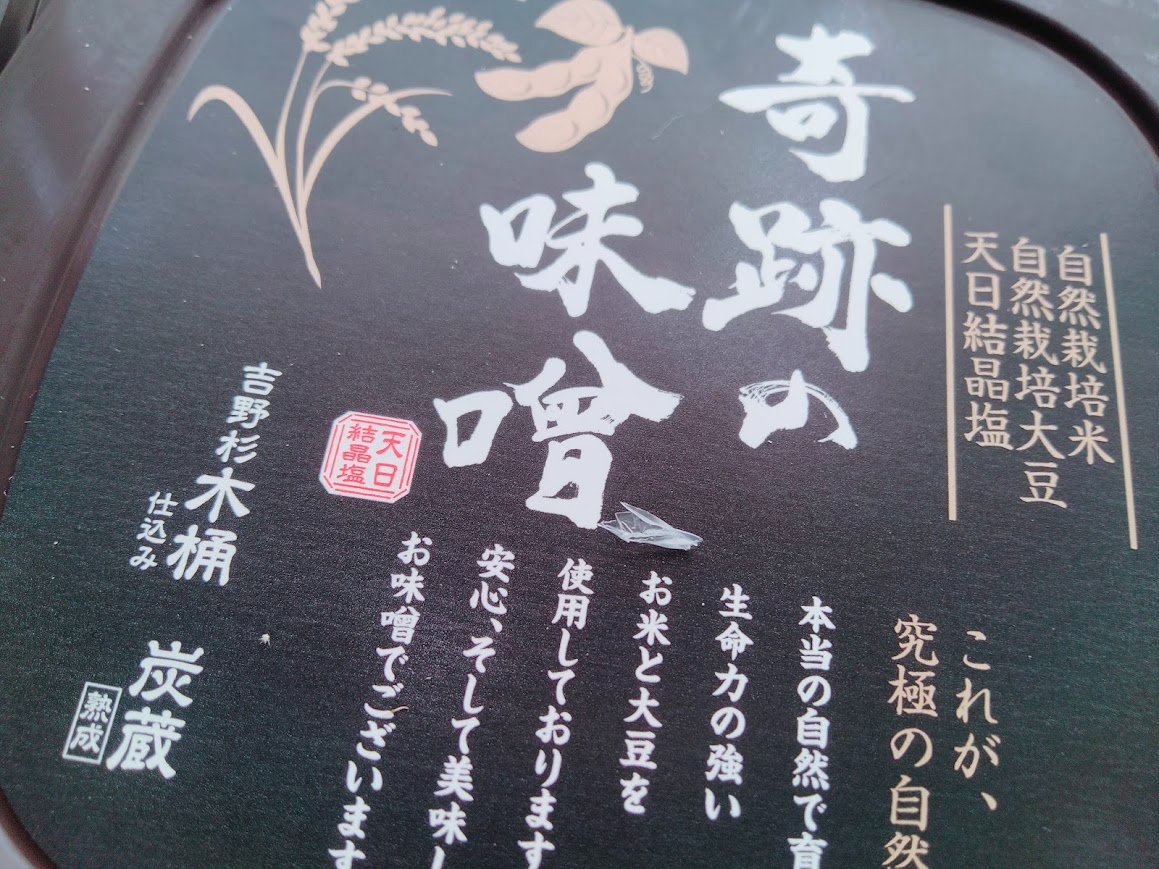 自然栽培米
自然栽培大豆
天日結晶塩
奇跡の
味噌
これが、
究極の自然
本当の自然で育
生命力の強い
お米と大豆を
使用しております
安心、そして美味し
お味噌でございます
天日
結晶塩
吉野杉木桶
仕込み
炭蔵
熟成